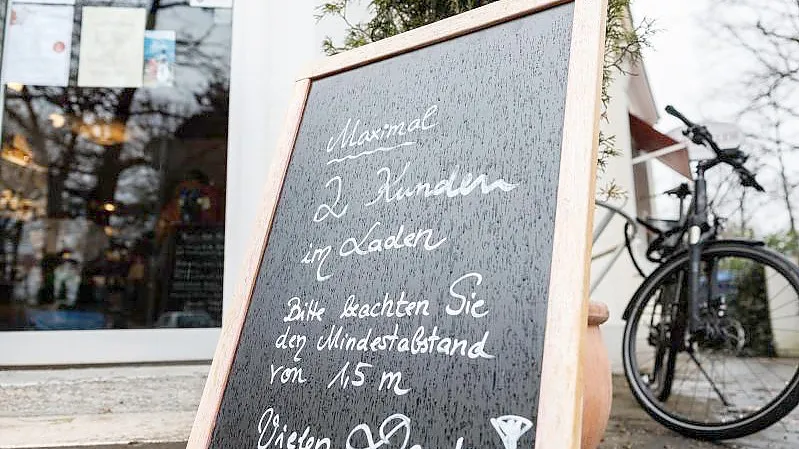 Maximal
2 Kunden
im Laden
Bitte beachten Sie
den Mindestabstand
von 1,5 m
Vielen Dank